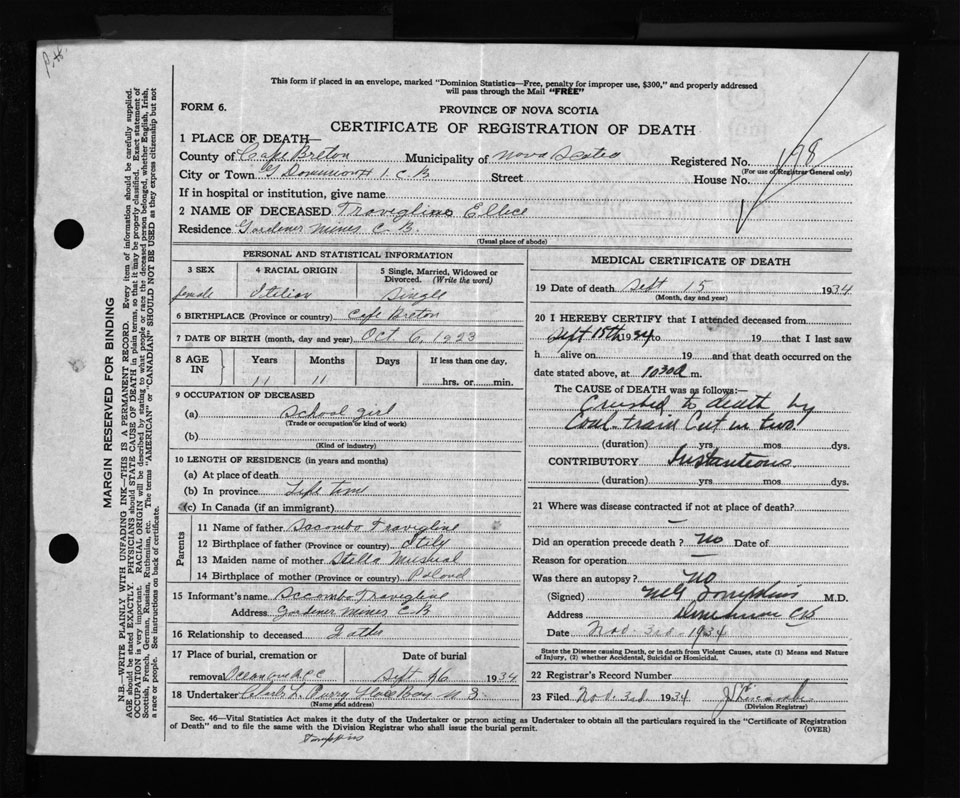 P.H.
This form if placed in an envelope, marked "Dominion Statistics—Free, penalty for improper use, $300," and properly addressed
will pass through the Mail "FREE"
FORM 6.
PROVINCE OF NOVA SCOTIA
CERTIFICATE OF REGISTRATION OF DEATH
1 PLACE OF DEATH—
County of Cape Breton Municipality of Nova Scotia Registered No. 198
(For use of Registrar General only)
City or Town Dominion 1 C B Street House No.
If in hospital or institution, give name
2 NAME OF DECEASED Traviglino Ellice
Residence Gardener Mines C B.
(Usual place of abode)
PERSONAL AND STATISTICAL INFORMATION
3 SEX 4 RACIAL ORIGIN 5 Single, Married, Widowed or
Divorced. (Write the word)
female Itilian Single
6 BIRTHPLACE (Province or country) Cape Breton
7 DATE OF BIRTH (month, day and year) Oct 6, 1923
8 AGE IN Years Months Days If less than one day,
11 11 hrs. or min.
9 OCCUPATION OF DECEASED
(a) School girl
(Trade or occupation or kind of work)
(b)
(Kind of industry)
10 LENGTH OF RESIDENCE (in years and months)
(a) At place of death
(b) In province Life time
(c) In Canada (if an immigrant)
Parents
11 Name of father Sacombo Travigline
12 Birthplace of father (Province or country) Itily
13 Maiden name of mother Stella Musual
14 Birthplace of mother (Province or country) Polond
15 Informant's name Saccombo Travigline
Address Gardener Mines C B
16 Relationship to deceased Father
17 Place of burial, cremation or Date of burial
removal Sept 16 1934
18 Undertaker Curry Glace Bay N. S.
(Name and address)
MEDICAL CERTIFICATE OF DEATH
19 Date of death Sept 15 1934
(Month, day and year)
20 I HEREBY CERTIFY that I attended deceased from
Sept 15th 1934 to 19 that I last saw
h alive on 19 and that death occurred on the
date stated above, at 1030a m.
The CAUSE OF DEATH was as follows:—
Crushed to death by
Coal train Cut in two.
(duration) yrs mos. dys.
CONTRIBUTORY Instantious
(duration) yrs mos. dys.
21 Where was disease contracted if not at place of death?
—
Did an operation precede death? No Date of
Reason for operation —
Was there an autopsy? No
(Signed) Tompkins M.D.
Address Dominion CB
Date Nov 3rd 1934
State the Disease causing Death, or in death from Violent Causes, state (1) Means and Nature
of Injury, (2) whether Accidental, Suicidal or Homicidal.
22 Registrar's Record Number
23 Filed Nov 3rd 1934
(Division Registrar)
Sec. 46—Vital Statistics Act makes it the duty of the Undertaker or person acting as Undertaker to obtain all the particulars required in the "Certificate of Registration
of Death" and to file the same with the Division Registrar who shall issue the burial permit.
(OVER)
Tompkins
MARGIN RESERVED FOR BINDING
N.B.—WRITE PLAINLY WITH UNFADING INK—THIS IS A PERMANENT RECORD. Every item of information should be carefully supplied.
AGE should be stated EXACTLY. PHYSICIANS should STATE CAUSE OF DEATH in plain terms, so that it may be properly classified. Exact statement of
OCCUPATION is very important. RACIAL ORIGIN will be described by stating to what people or race the deceased person belonged, whether English, Irish,
Scottish, French, German, Russian, Ruthenian, etc. The terms "AMERICAN" or "CANADIAN" SHOULD NOT BE USED as they express citizenship but not
a race or people. See instructions on back of certificate.